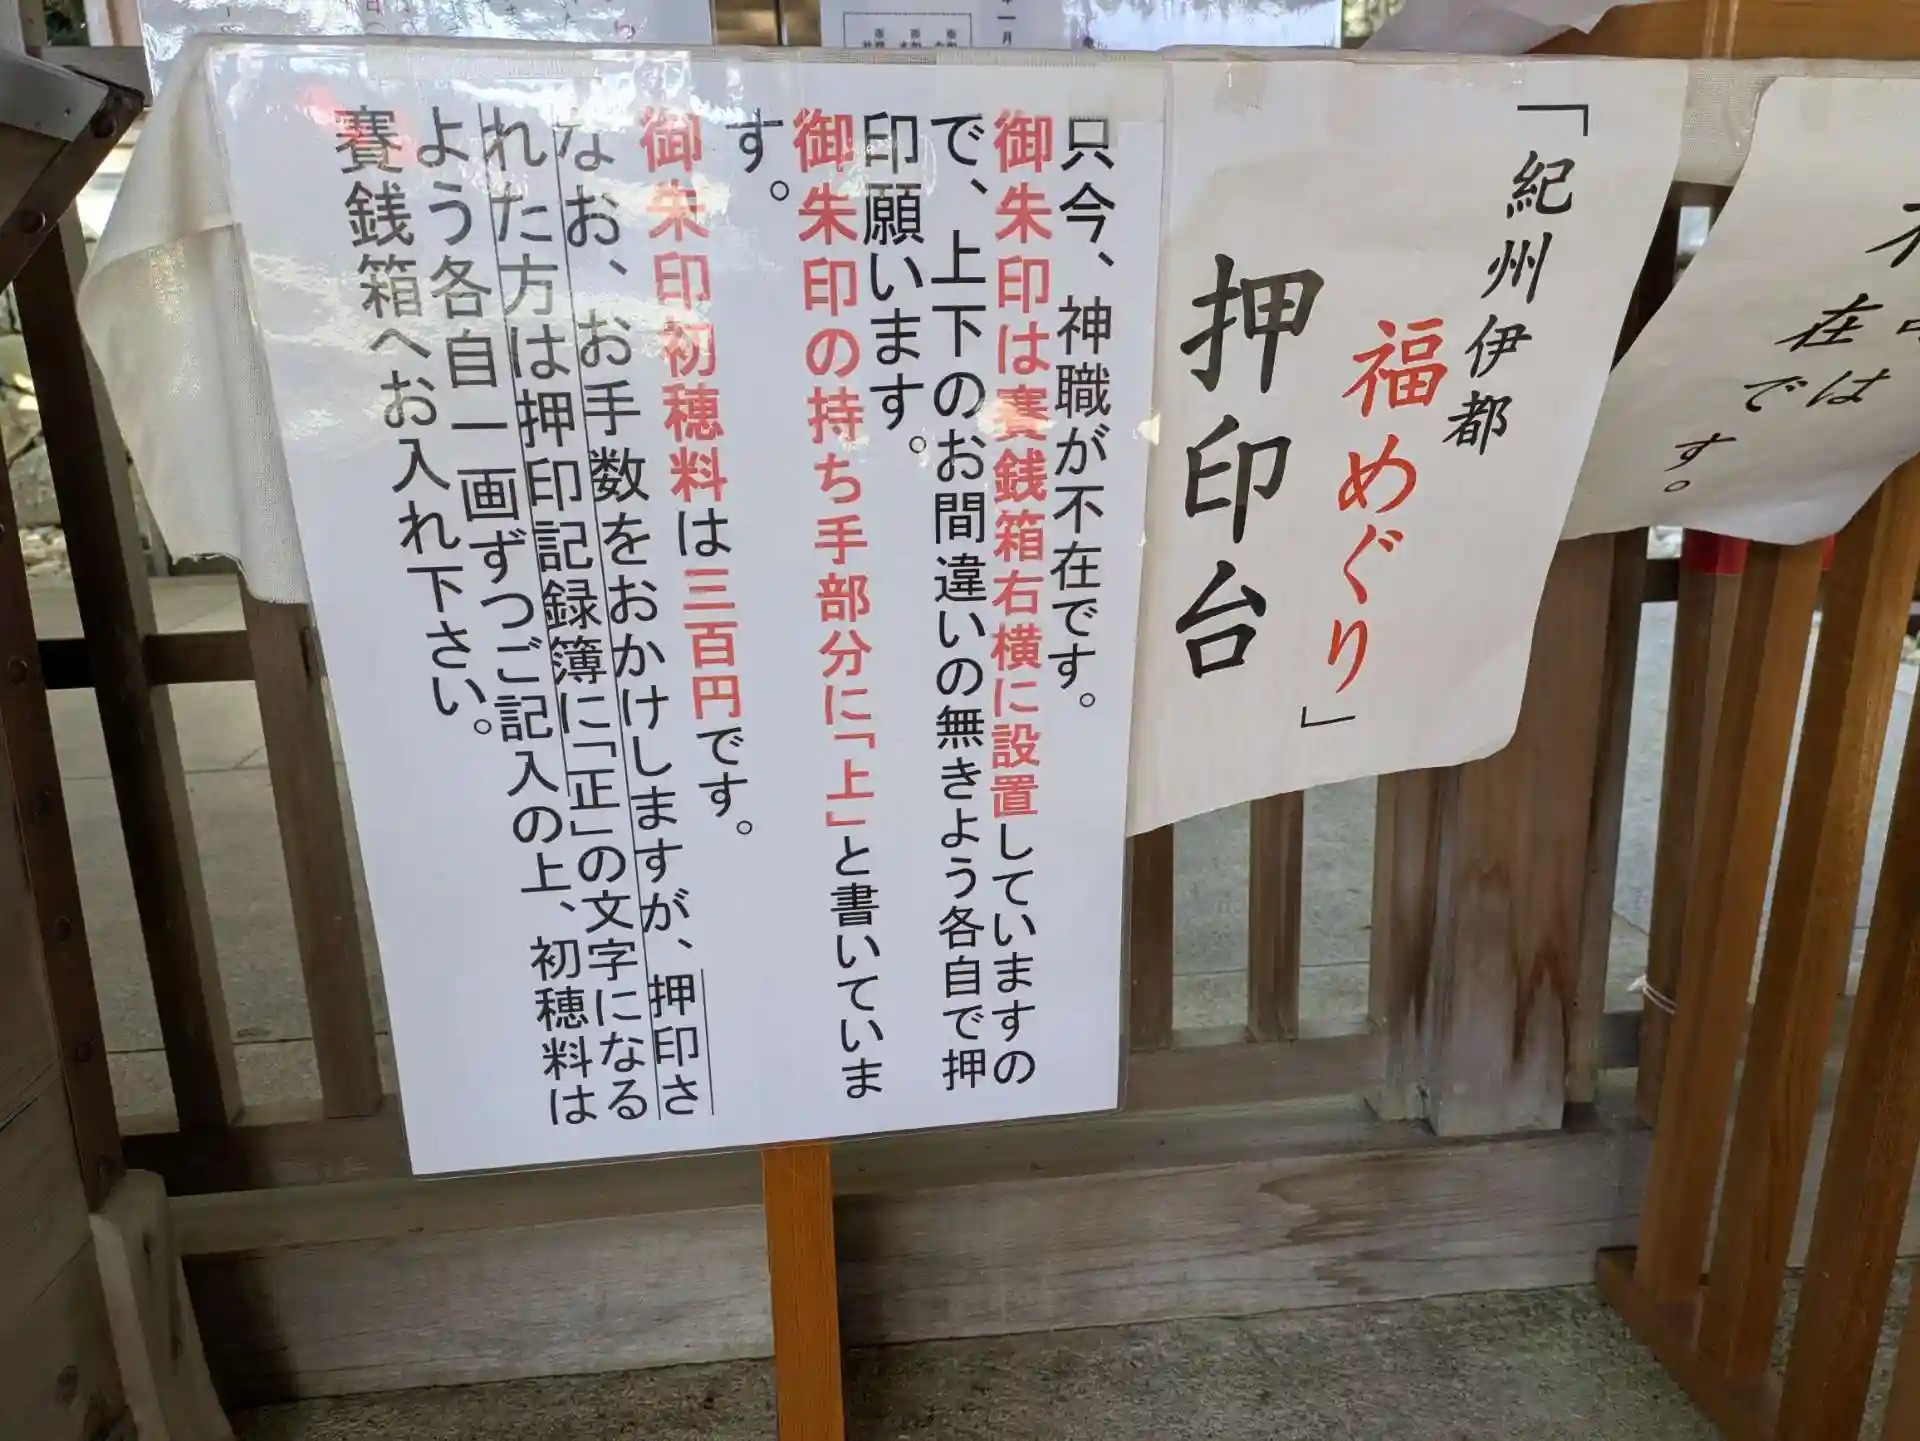 「紀州伊都
福めぐり」
押印台
只今、神職が不在です。
御朱印は賽銭箱右横に設置していますの
で、上下のお間違いの無きよう各自で押
印願います。
御朱印の持ち手部分に「上」と書いていま
す。
御朱印初穂料は三百円です。
なお、お手数をおかけしますが、押印さ
れた方は押印記録簿に「正」の文字になる
よう各自一画ずつご記入の上、初穂料は
賽銭箱へお入れ下さい。
在
では
す。